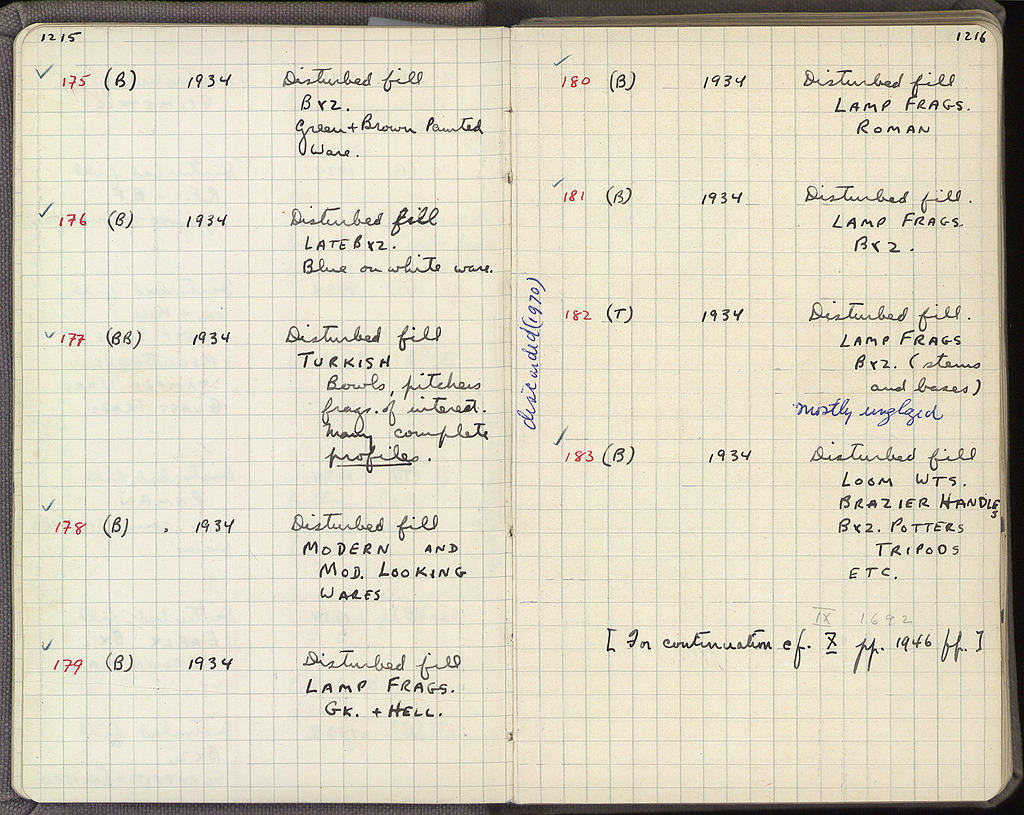 1215
175 (B) 1934 Disturbed fill
Byz.
Green + Brown Painted
Ware.
176 (B) 1934 Disturbed fill
LATE Byz.
Blue on white ware.
177 (BB) 1934 Disturbed fill
TURKISH
Bowls, pitchers
frags. of interest.
Many complete
profiles.
178 (B) . 1934 Disturbed fill
MODERN AND
MOD. LOOKING
WARES
179 (B) 1934 Disturbed fill
LAMP FRAGS.
GK. + HELL.
1216
180 (B) 1934 Disturbed fill
LAMP FRAGS.
ROMAN
181 (B) 1934 Disturbed fill.
LAMP FRAGS.
Byz.
discarded (1970)
182 (T) 1934 Disturbed fill.
LAMP FRAGS
Byz. (stems
and bases)
mostly unglzed
183 (B) 1934 Disturbed fill
LOOM WTS.
BRAZIER HANDLES
Byz. POTTERS
TRIPODS
ETC.
IX 1692
[ For continuation cf. X pp. 1946 ff. ]